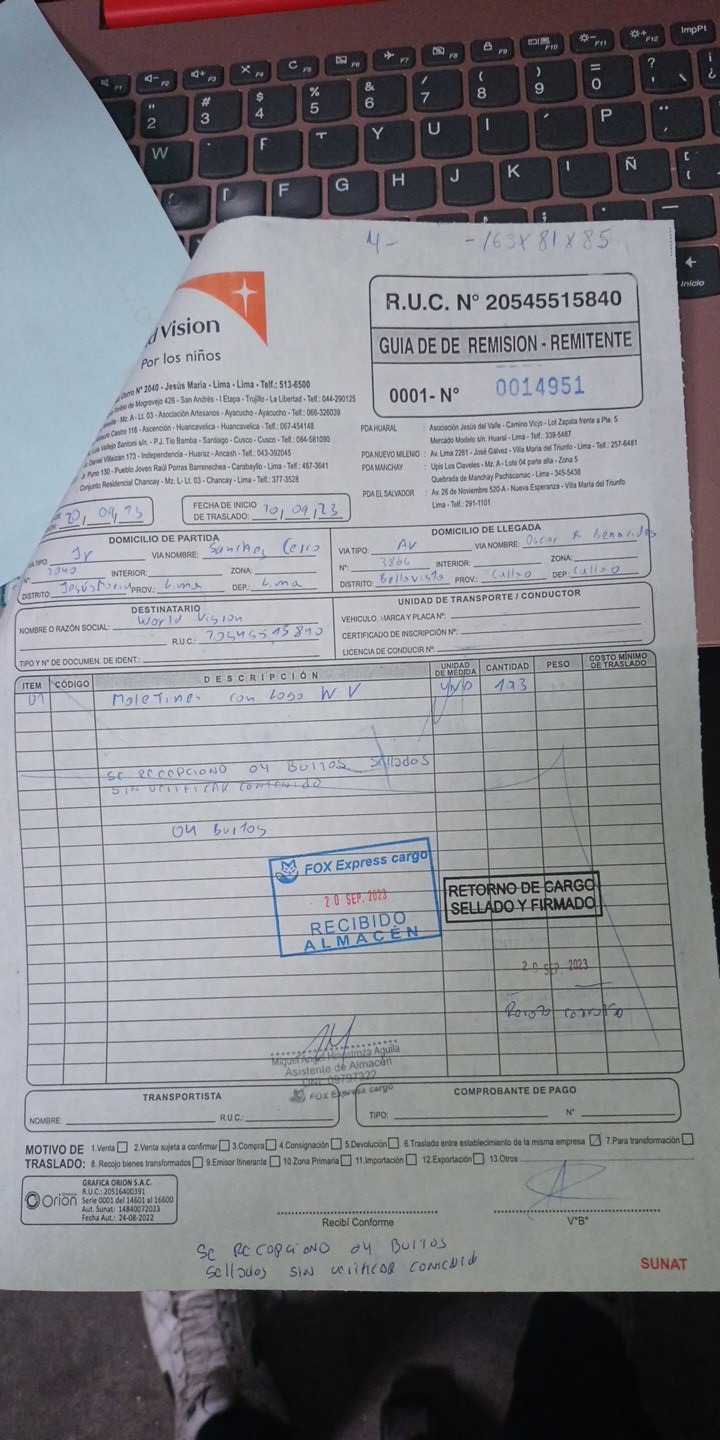 4- -163x81x85
d Vision
Por los niños
R.U.C. N° 20545515840
GUIA DE DE REMISION - REMITENTE
0001- N° 0014951
Cerro N° 2040 - Jesús Maria - Lima - Lima - Telf.: 513-6500
de Mogrovejo 426 - San Andrés - I Etapa - Trujillo - La Libertad - Telf.: 044-290125
Mz. A - Lt. 03 - Asociación Artesanos - Ayacucho - Ayacucho - Telf.: 066-326039
Castro 118 - Ascención - Huancavelica - Huancavelica - Telf.: 067-454148
Vallejo Santoni s/n. - P.J. Tio Bamba - Santiago - Cusco - Cusco - Telf.: 084-581090
Daniel Villaizan 173 - Independencia - Huaraz - Ancash - Telf.: 043-392045
Jr. Puno 130 - Pueblo Joven Raúl Porras Barrenechea - Carabayllo - Lima - Telf.: 487-3641
Conjunto Residencial Chancay - Mz. L- Lt. 03 - Chancay - Lima - Telf.: 377-3528
PDA HUARAL : Asociación Jesús del Valle - Camino Viejo - Lot Zapata frente a Pte. 5
Mercado Modelo s/n. Huaral - Lima - Telf.: 339-5487
PDA NUEVO MILENIO : Av. Lima 2261 - José Gálvez - Villa María del Triunfo - Lima - Telf.: 257-6481
PDA MANCHAY : Upis Los Claveles - Mz. A - Lote 04 parte alta - Zona 5
Quebrada de Manchay Pachacamac - Lima - 345-5438
PDA EL SALVADOR : Av. 26 de Noviembre 520-A - Nueva Esperanza - Villa María del Triunfo
Lima - Telf.: 291-1101
20, 09, 23
FECHA DE INICIO DE TRASLADO: 20, 09, 23
DOMICILIO DE PARTIDA
VIA TIPO: Jr VIA NOMBRE: Sanchez Cerro
N°: 2040 INTERIOR: ZONA:
DISTRITO: Jesús Maria PROV.: Lima DEP.: Lima
DOMICILIO DE LLEGADA
VIA TIPO: AV VIA NOMBRE: Oscar R Benavides
N°: 3866 INTERIOR: ZONA:
DISTRITO: Bellavista PROV.: Callao DEP: Callao
DESTINATARIO
NOMBRE O RAZÓN SOCIAL: World Vision
R.U.C.: 20545515840
TIPO Y N° DE DOCUMEN. DE IDENT.:
UNIDAD DE TRANSPORTE / CONDUCTOR
VEHICULO, MARCA Y PLACA N°:
CERTIFICADO DE INSCRIPCIÓN N°:
LICENCIA DE CONDUCIR N°:
ITEM CÓDIGO DESCRIPCIÓN UNIDAD DE MEDIDA CANTIDAD PESO COSTO MÍNIMO DE TRASLADO
01 Maletines con Logo WV UND 193
SE RECEPCIONO 04 BULTOS Sellados
SIN VERIFICAR CONTENIDO
04 Bultos
FOX Express cargo
20 SEP. 2023
RECIBIDO
ALMACÉN
RETORNO DE CARGO
SELLADO Y FIRMADO
20 SEP. 2023
Miguel Angel Hinostroza Aguila
Asistente de Almacén
DNI: 09797322
FOX Express cargo
TRANSPORTISTA
NOMBRE: R.U.C.:
COMPROBANTE DE PAGO
TIPO: N°
MOTIVO DE TRASLADO: 1.Venta 2.Venta sujeta a confirmar 3.Compra 4.Consignación 5.Devolución 6.Traslado entre establecimiento de la misma empresa 7.Para transformación
8. Recojo bienes transformados 9.Emisor Itinerante 10 Zona Primaria 11.Importación 12.Exportación 13.Otros
Orión
GRAFICA ORION S.A.C.
R.U.C.: 20516400391
Serie 0001 del 14601 al 16600
Aut. Sunat: 14840072023
Fecha Aut.: 24-08-2022
Recibí Conforme
V°B°
SE RECEPCIONO 04 BULTOS
Sellados SIN VERIFICAR CONTENIDO
SUNAT